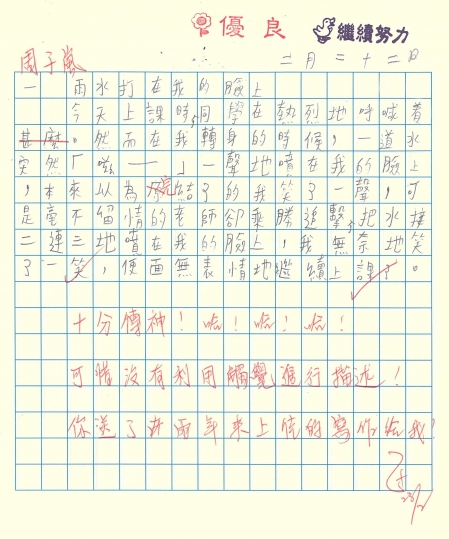 優良 繼續努力
周子嵐 二月二十二日
一 雨水打在我的臉上
今天上課時,同學在熱烈地呼喊着
甚麼。然而在我轉身的時候,一道水
突然「嗞——」一聲地噴在我的臉上
,本來以為完結了的我笑了一聲,可
是毫不留情的老師卻乘勝追擊,把水接
二連三地噴在我的臉上,我無奈地笑
了一笑,便面無表情地繼續上課了。
十分傳神!哈!哈!哈!
可惜沒有利用觸覺進行描述!
你送了廿兩年來上佳的寫作給我!
23/2